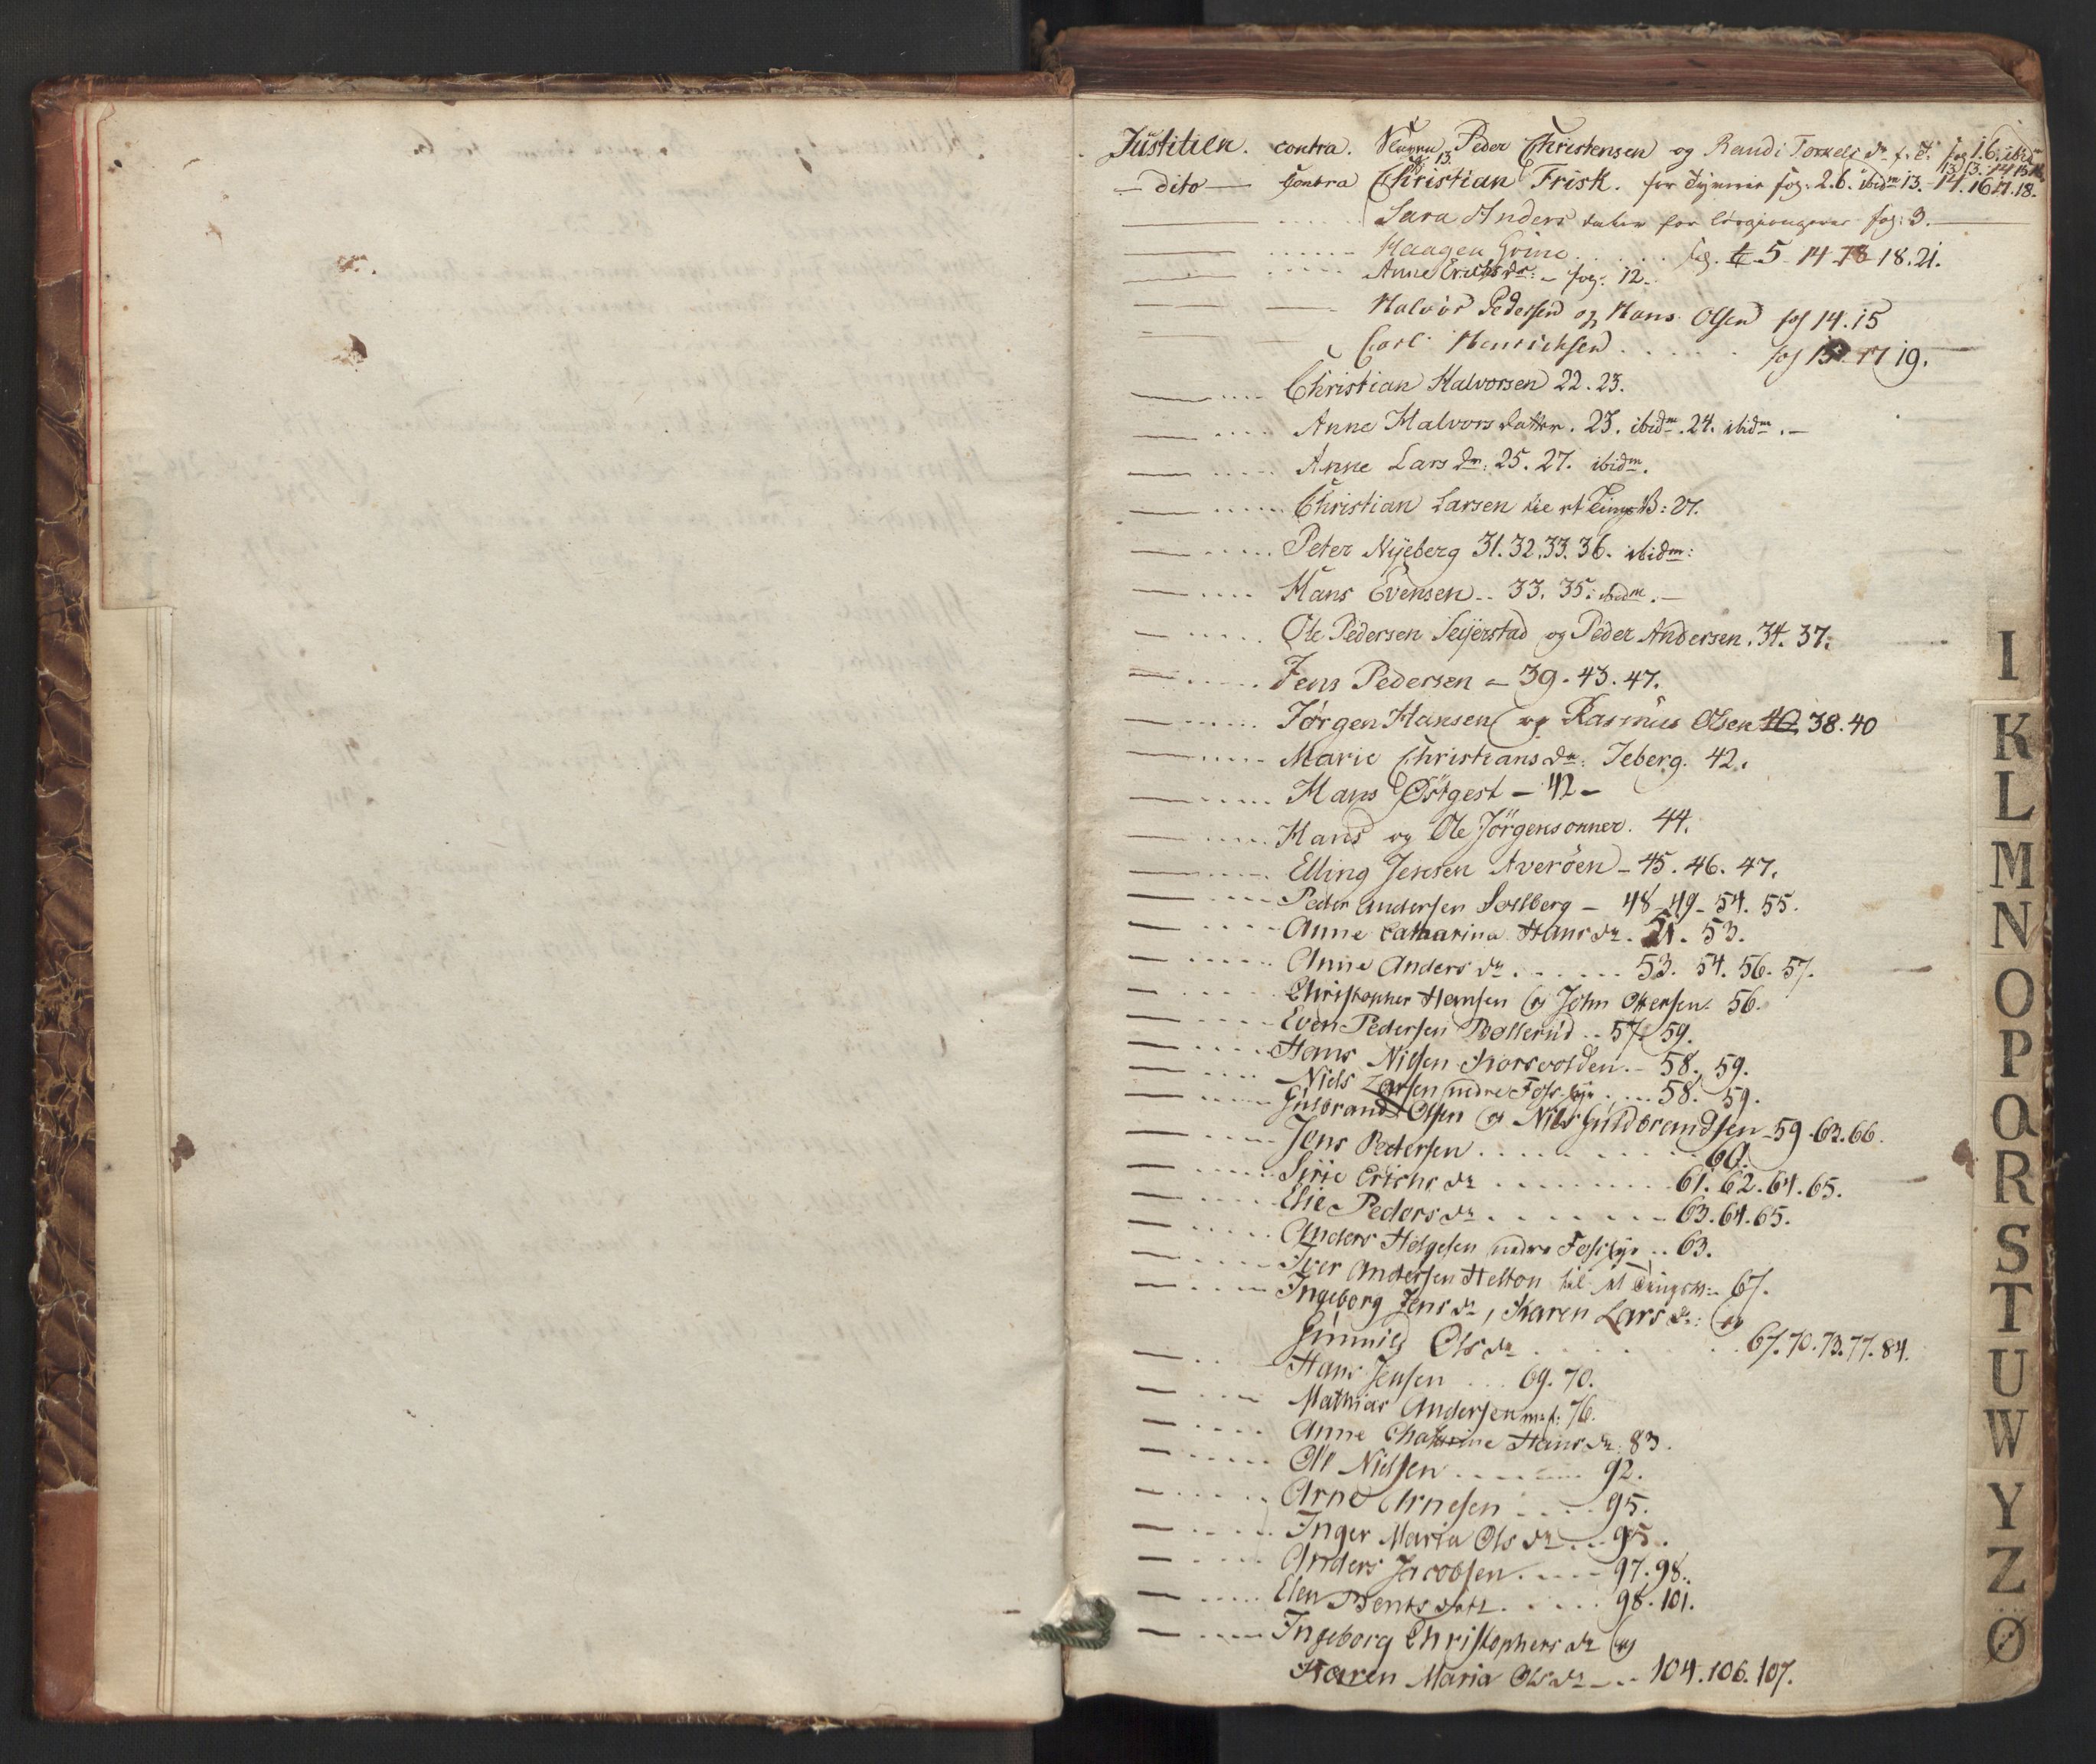 Justitien. contra. Peder Christensen og Randi Torkels dr f. T. fog 1. 6. ibid
13. 13. 13. 14 15 16.
– dito – Contra Christian Frisk. for Tyverie fog: 2. 6. ibidm 13. 14. 16 17. 18.
Sara Anders datter for løsgiængerie fog: 3.
Haagen Grine . . . . . fog. 4 5 14 18 18. 21.
Anne Erichs dr: – fog: 12.
Halvor Pedersen og Hans Olsen fog 14. 15
Carl Henrichsen . . . . . fog 15 17 19.
Christian Halvorsen 22. 23.
Anne Halvors datter. 23. ibidm. 24. ibidm. –
Anne Lars dr: 25. 27. ibidm.
Christian Larsen til et Tings V: 27.
Peter Nyeberg 31. 32. 33. 36. ibidm:
Hans Evensen .. 33. 35. ibidm. –
Ole Pedersen Seyerstad og Peder Andersen. 34. 37.
Jens Pedersen – 39. 43. 47.
Jørgen Hansen og Rasmus Olsen 40 38. 40
Marie Christians dr: Jeberg. 42.
Hans Østgest – 42 –
Hans og Ole Jörgensønner. 44.
Elling Jensen Averöen – 45. 46. 47.
Peder Andersen Soelberg – 48 49 – 54. 55.
Anne Catharina Hans dr. 51. 53.
Anne Anders dr . . . . . . 53. 54. 56. 57.
Christopher Hansen og John Ottersen. 56.
Even Pedersen Bøllerud .. 57. 59.
Hans Nilsen Korsvolden. – 58. 59.
Niels Larsen nedre Foss . . . . 58. 59.
Gulbrand Olsen og Nils Guldbrandsen – 59. 63. 66.
Jens Pedersen . . . . . . . . . 60.
Sirie Erichs dr . . . . . . . . 61. 62. 64. 65.
Elie Peders dr . . . . . . . 63. 64. 65.
Anders Helgesen nedre Foss .. 63.
Iver Andersen Helton til et Tingsv: – 67.
Ingeborg Jens dr, Karen Lars dr: og
Gunnild Ols dr . . . . . . . 67. 70. 73. 77. 84.
Hans Jensen . . . 69. 70.
Mathias Andersen m: f: 76.
Anne Chatarine Hans dr: 83.
Ole Nielsen . . . . . . . 92.
Arne Arnesen . . . . 95.
Inger Maria Ols dr . . . 95.
Anders Jacobsen . . . . . 97. 98.
Elen Bents datr . . . . . 98. 101.
Ingeborg Christophers dr og
Karen Maria Ols dr . . . 104. 106. 107.
I
K
L
M
N
O
P
Q
R
S
T
U
W
Y
Z
Ø